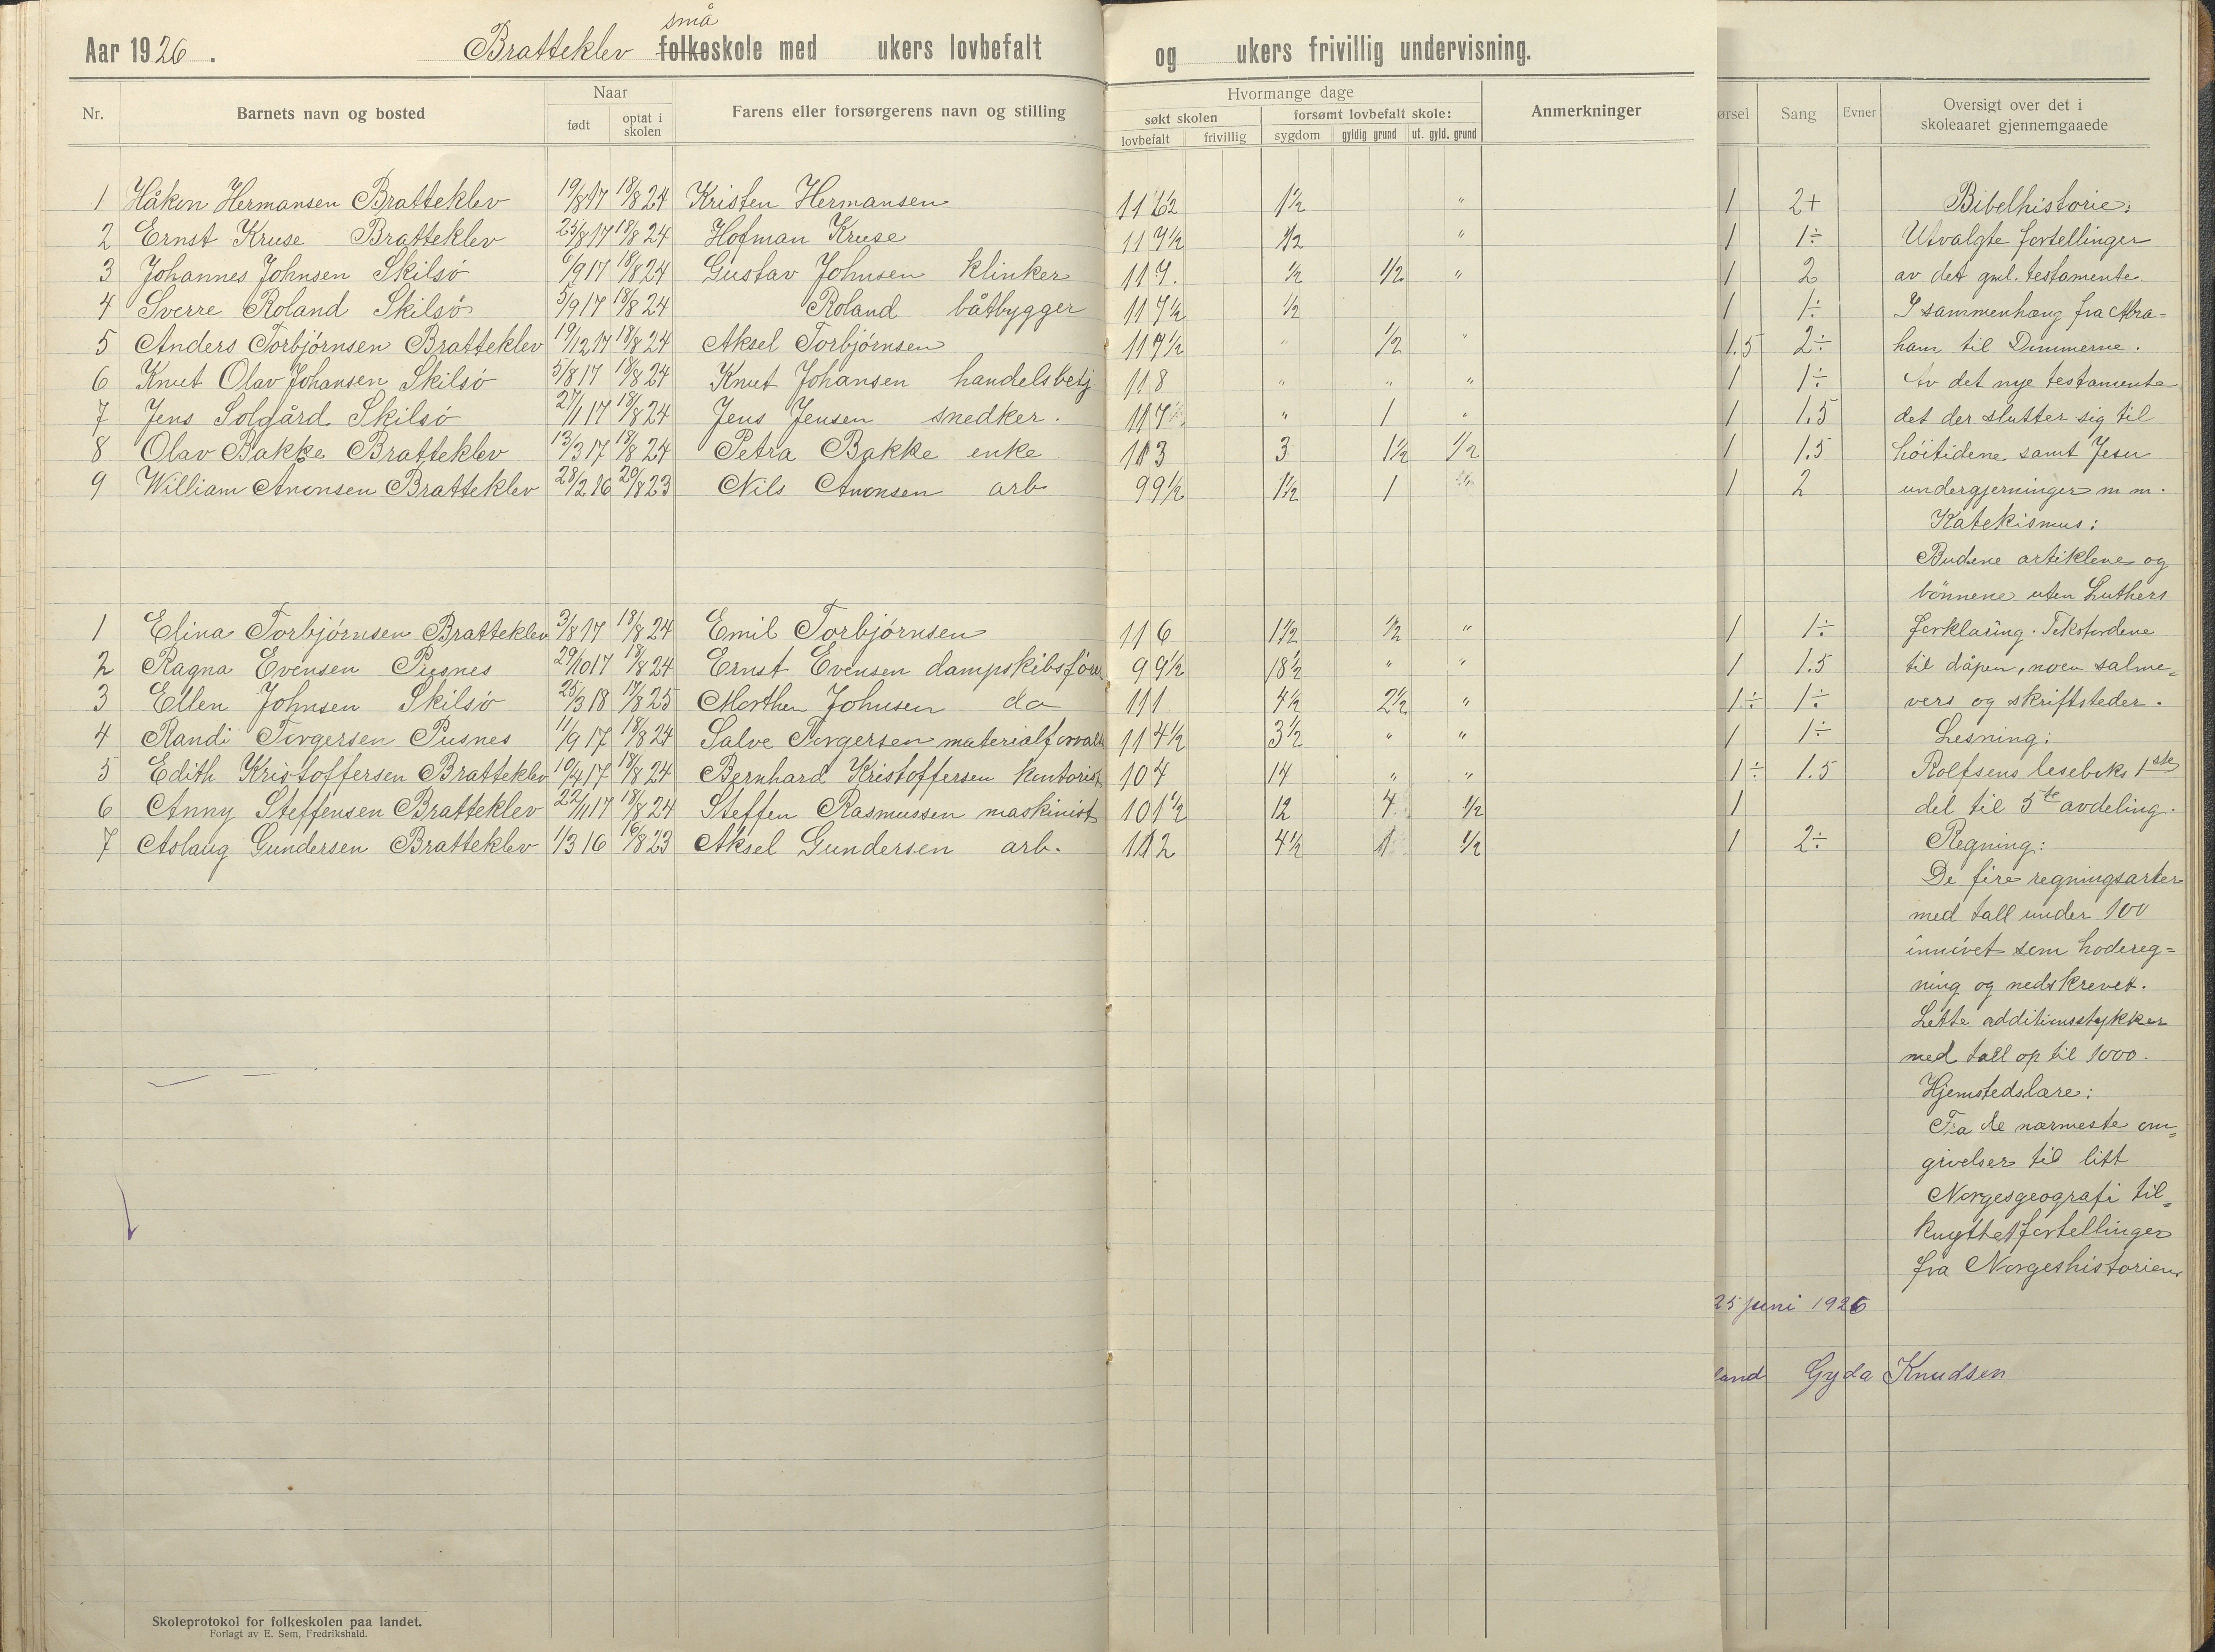 Aar 1926.
Bratteklev små folkeskole med ukers lovbefalt og ukers frivillig undervisning.
Nr. Barnets navn og bosted Naar Farens eller forsørgerens navn og stilling Hvormange dage Anmerkninger
født optat i skolen søkt skolen forsømt lovbefalt skole:
lovbefalt frivillig sygdom gyldig grund ut. gyld. grund
1 Håken Hermansen Bratteklev 19/8 17 18/8 24 Kristen Hermansen 116 1/2 1 1/2 "
2 Ernst Kruse Bratteklev 25/8 17 18/8 24 Hofman Kruse 117 1/2 1/2 "
3 Johannes Johnsen Skilsö 6/9 17 18/8 24 Gustav Johnsen klinker 117. 1/2 1/2 "
4 Sverre Roland Skilsö 5/9 17 18/8 24 Roland båtbygger 117 1/2 1/2
5 Anders Torbjörnsen Bratteklev 19/12 17 18/8 24 Aksel Torbjörnsen 117 1/2 " 1/2 "
6 Knut Olav Johansen Skilsö 5/8 17 18/8 24 Knut Johansen handelsbetj. 118 " " "
7 Jens Solgård Skilsö 27/1 17 18/8 24 Jens Jensen snedker. 117 " 1 "
8 Olav Bakke Bratteklev 13/3 17 18/8 24 Petra Bakke enke 113 3 1 1/2 1/2
9 William Anonsen Bratteklev 28/2 16 20/8 23 Nils Anonsen arb 99 1/2 1 1/2 1
1 Elina Torbjörnsen Bratteklev 3/8 17 18/8 24 Emil Torbjörnsen 116 1 1/2 1/2 "
2 Ragna Evensen Pusnes 29/10 17 18/8 24 Ernst Evensen dampskibsförer 99 1/2 18 1/2 " "
3 Ellen Johnsen Skilsö 25/3 18 17/8 25 Morthen Johnsen do 111 4 1/2 2 1/2 "
4 Randi Torgersen Pusnes 11/9 17 18/8 24 Salve Torgersen materialforvalt 114 1/2 3 1/2 " "
5 Edith Kristoffersen Bratteklev 10/4 17 18/8 24 Bernhard Kristoffersen kontorist 104 14 " "
6 Anny Steffensen Bratteklev 22/11 17 18/8 24 Steffen Rasmussen maskinist 101 1/2 12 4 1/2
7 Aslaug Gundersen Bratteklev 1/3 16 16/8 23 Aksel Gundersen arb. 112 4 1/2 1 1/2
Skoleprotokol for folkeskolen paa landet.
Forlagt av E. Sem, Fredrikshald.
ørsel Sang Evner Oversigt over det i
skoleaaret gjennemgaaede
1 2+ Bibelhistorie:
1 1÷ Utvalgte fortellinger
1 2 av det gml. testamente.
1 1÷ I sammenhæng fra Abra=
1.5 2÷ ham til Dommerne.
1 1÷ Av det nye testamente
1 1.5 det der slutter sig til
1 1.5 höitidene samt Jesu
1 2 undergjerninger m m.
Katekismus:
Budene artiklene og
bönnene uten Luthers
1 1÷ forklaring. Tekstordene
1 1.5 til dåpen, noen salme=
1÷ 1÷ vers og skriftsteder.
1 1÷ Lesning:
1÷ 1.5 Rolfsens leseboks 1ste
1 del til 5te avdeling.
1 2÷ Regning:
De fire regningsarter
med tall under 100
innövet som hodereg=
ning og nedskrevet.
Lette additionsstykker
med tall op til 1000.
Hjemstedslære:
Fra de nærmeste om=
givelser til litt
Norgesgeografi til=
knyttet fortellinger
fra Norgeshistorien.
25 juni 1926
land Gyda Knudsen